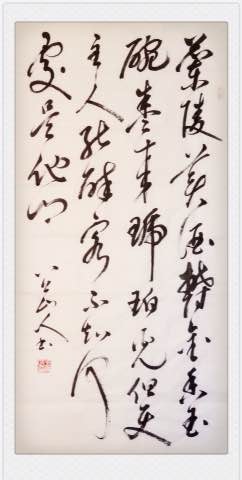 蘭陵美酒鬱金香玉
碗盛来琥珀光但使
主人能醉客不知何
處是他鄉
八公山人书